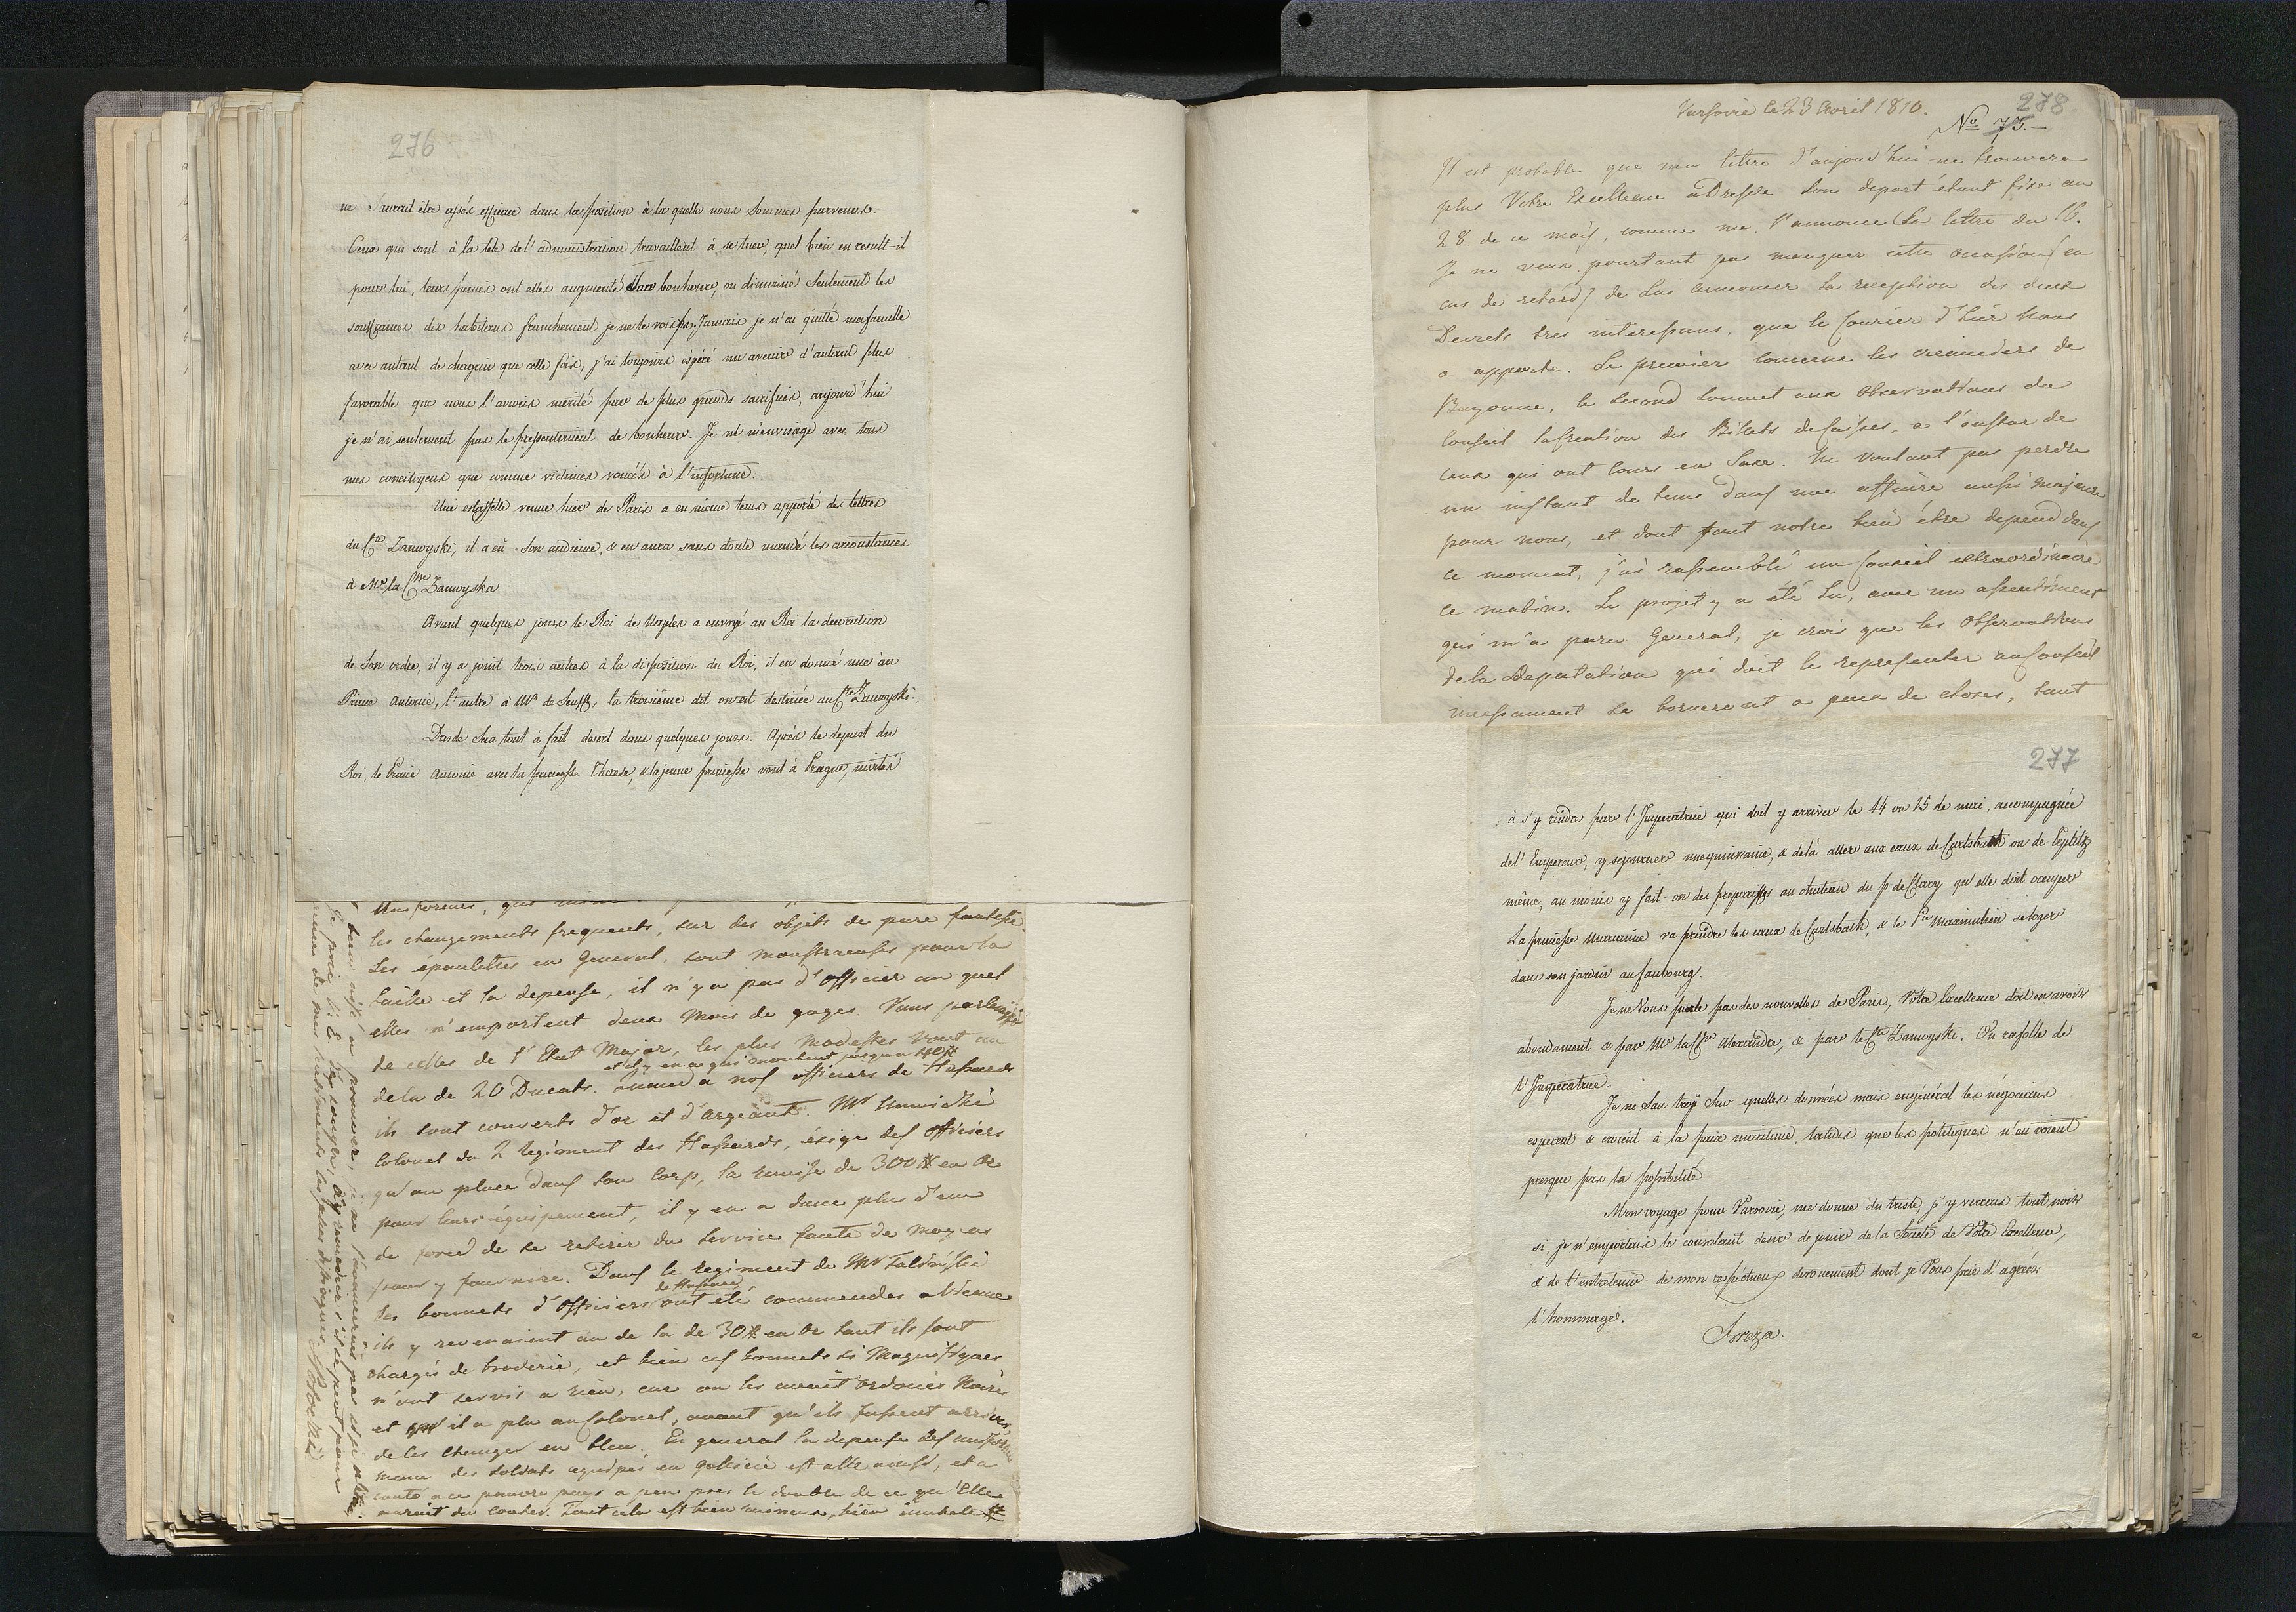 276
ne saurait être assés efficace dans la position à la quelle nous sommes parvenus.
Ceux qui sont à la tête de l'administration travaillent à se tuer, quel bien en result-il
pour lui, leurs peines ont elles augmenté bonheur, ou diminué seulement les
souffrances des habitans franchement je ne le vois pas. Jamais je n'ai quitté ma famille
avec autant de chagrin que cette fois, j'ai toujours espéré un avenir d'autant plus
favorable que nous l'avions merité par de plus grands sacrifices, aujourd'hui
je n'ai seulement pas le pressentiment de bonheur. Je ne m'envisage avec tous
mes concitoyens que comme victimes voués à l'infortune.
Une estaffette venue hier de Paris a en même tems apporté des lettres
du Cte Zamoyski, il a eû son audience, & en aura sans doute mandé les circonstances
à Me la Ctsse Zamoyska
Avant quelques jours le Roi de Naples a envoyé au Roi la decoration
de Son ordre, il y a joint trois autres à la disposition du Roi, il en donné une au
Prince Antoine, l'autre à Mr de Senfft, la troisième dit on est destinée au Cte Zamoyski.
Dresde sera tout à fait desert dans quelques jours. Après le depart du
Roi, le Prince Antoine avec la princesse Therese, & la jeune princesse vont à Prague, invités
Uniformes, que
les changements frequents, sur des objets de pure fantesie
Les épaulettes en General, sont monstrueuses pour la
taille et la depense, il n'y a pas d'officier au quel
elles n'emportent deux Mois de gages. Vous parlerais je
de celles de l'Etat Major, les plus modestes vont au
et il y en a qui montent jusqua 40 #
dela de 20 Ducats. quand a nos officiers de Hussards
ils sont couverts d'or et d'Argeant. Mr
Colonel du 2 regiment des Hussards, exige des officiers
qu'on place dans son Corps, la remise de 300 # en Or
pour leurs équipement, il y en a donc plus d'un
de forcé de se retirer du service faute de moyens
pour y fournire. Dans le regiment de Mr
de Hussard
les bonnets d'officiers ont été commendes a Vienne
ils y revenaient au de la de 30 # en Or tant ils sont
chargés de broderie, et bien ces bonnets si Magnifiques
n'ont servis a rien, car on les avait ordonés Noirs
et il a plu au Colonel, avant qu'ils fussent arrivés
de les changer en bleu. En general la depense des uniformes
meme des soldats equipés en Gallicie est allé aussi, et a
couté a ce pauvre pays a peu pres le double de ce qu'Elle
aurait du couter. Tout cela est bien ruineux, bien #
bien aisé a prouver, je ne l'avancerais pas
je prie V: E: d'y songer, d'y remedier s'il se peut
de mes sentiments les plus distingués.
278
Varsovie le 23 Avril 1810.
No 73.
Il est probable que ma lettre d'aujourd'hui ne trouvera
plus Votre Excellence a Dresde son depart étant fixé au
28. de ce mois, comme me l'annonce Sa lettre du 16.
Je ne veux pourtant pas manquer cette occasion (en
cas de retard) de Lui annoncer la reception des deux
Decrets tres interessans, que le Courier d'hier Nous
a apporté. Le premier concerne les creanciers de
Bayonne, le second soumet aux observations du
Conseil la Creation des Billets de Caisses, a l'instar de
ceux qui ont cours en Saxe. Ne voulant pas perdre
un instant de tems dans une affaire aussi majeure
pour nous, et dont tout notre bien être depend dans
ce moment, j'ai rassemblé un Conseil extraordinaire
ce matin. Le projet y a été lu, avec un assentiment
qui m'a paru General, je crois que les Observations
de la Deputation qui doit le representer au Conseil
incessament se borneront a peu de choses, tant
277
à s'y rendre par l'Imperatrice qui doit y arriver le 14 ou 15 de mai, accompagnée
de l'Empereur, y séjourner une quinzaine, & delà aller aux eaux de Carlsbad ou de Teplitz
même, au moins y fait-on des preparatifs au chateau du p de Clary qu'elle doit occuper
La princesse Marianne va prendre les eaux de Carlsbath, & le Pce Maximilien se loger
dans son jardin au faubourg.
Je ne Vous parle pas des nouvelles de Paris, Votre Excellence doit en avoir
abondament & par Me la Ctsse Alexandre, & par le Cte Zamoyski. On rafolle de
l'Imperatrice.
Je ne Sai trop Sur quelles données mais en général les négocians
esperent & croient à la paix maritime, tandis que les politiques n'en voient
presque pas la possibilité
Mon voyage pour Varsovie, me donne du triste, j'y verrais tout noir
si je n'emportais le consolant desir de jouir de la Societé de Votre Excellence,
& de l'entretenir de mon respectueux devouement dont je Vous prie d'agréer
l'hommage.
Breza.